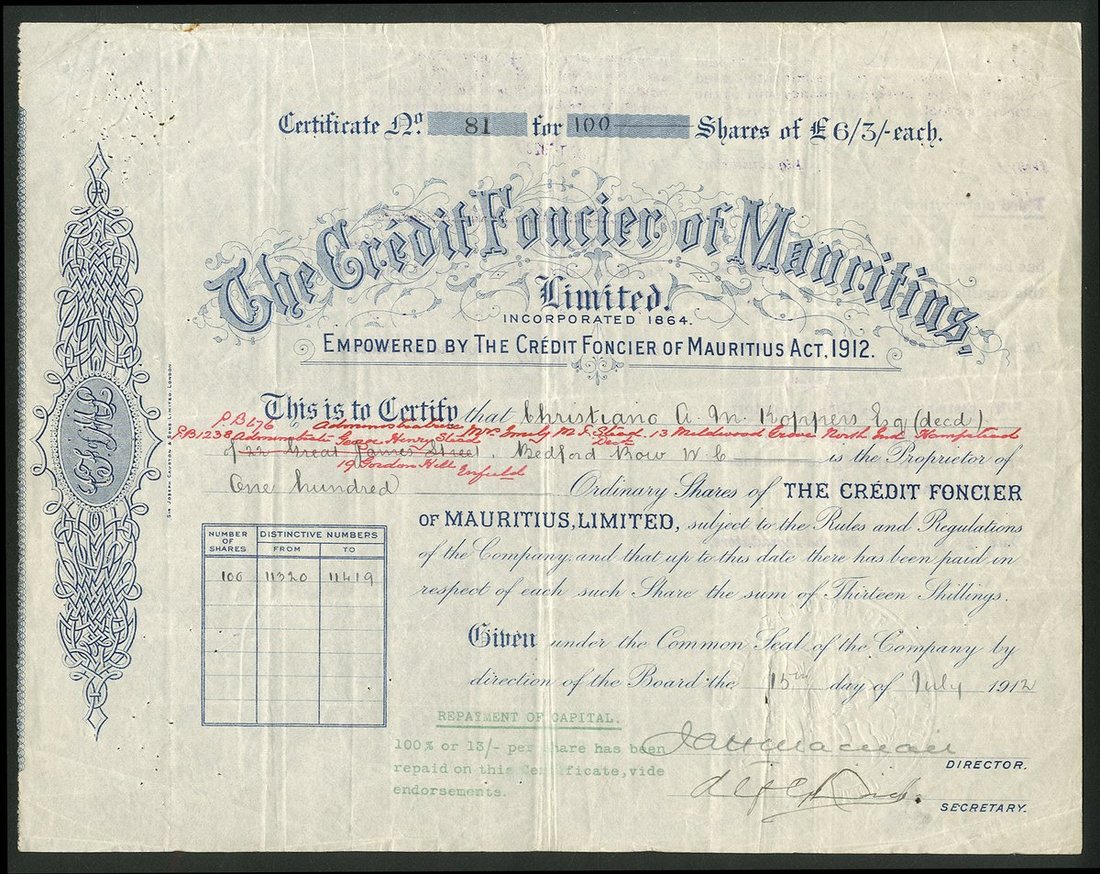 Certificate No. 81 for 100 Shares of £6/3/-each.
The Crédit Foncier of Mauritius,
Limited.
INCORPORATED 1864.
EMPOWERED BY THE CRÉDIT FONCIER OF MAURITIUS ACT, 1912.
This is to Certify that Christiano A. M. Koppers Esq (decd)
PB 676 Administratrix Mrs Emily M. J. Stead 13 Mildwood Grove North End Hampstead
PB1238 George Henry Stead Decd
of 22 Great James Street, Bedford Row W.C. is the Proprietor of
19 Gordon Hill Enfield
One hundred Ordinary Shares of THE CRÉDIT FONCIER
OF MAURITIUS, LIMITED, subject to the Rules and Regulations
of the Company, and that up to this date there has been paid in
respect of each such Share the sum of Thirteen Shillings.
NUMBER OF SHARES DISTINCTIVE NUMBERS
FROM TO
100 11320 11419
Given under the Common Seal of the Company by
direction of the Board the 15th day of July 1912
REPAYMENT OF CAPITAL.
100% or 13/- per share has been
repaid on this Certificate, vide
endorsements.
DIRECTOR.
SECRETARY.
SIR JOSEPH CAUSTON & SONS, LIMITED, LONDON